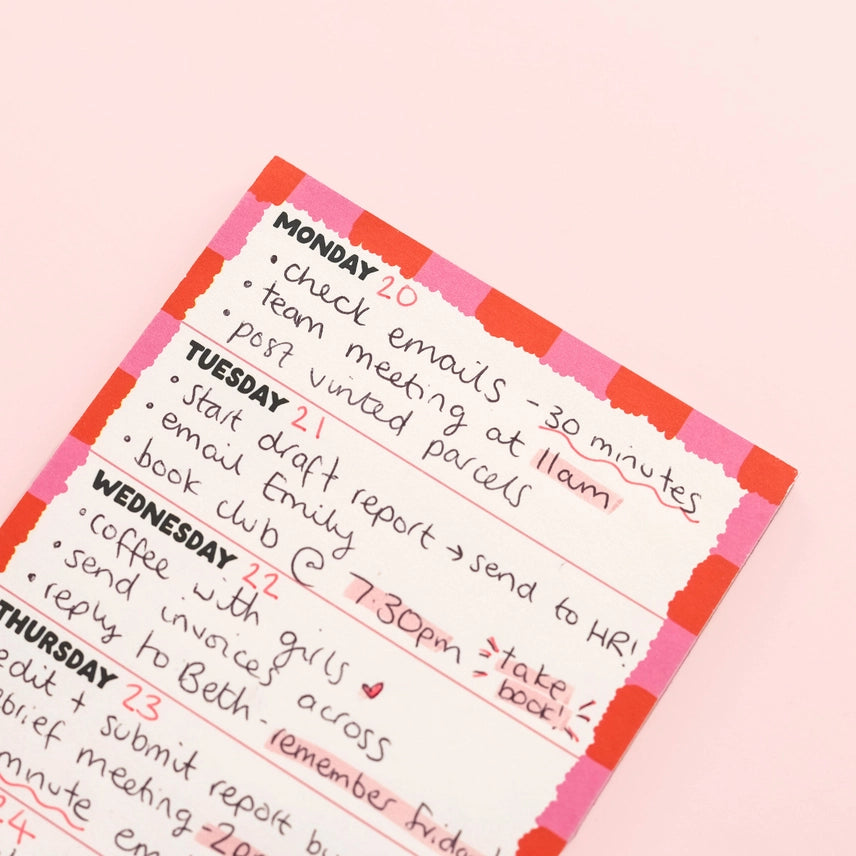 MONDAY 20
• check emails - 30 minutes
• team meeting at 11am
• post vinted parcels
TUESDAY 21
• start draft report → send to HR!
• email Emily
• book club @ 7:30pm take book!
WEDNESDAY 22
• coffee with girls ♥
• send invoices across
• reply to Beth - remember friday!
THURSDAY 23
edit + submit report
meeting - 2pm
24